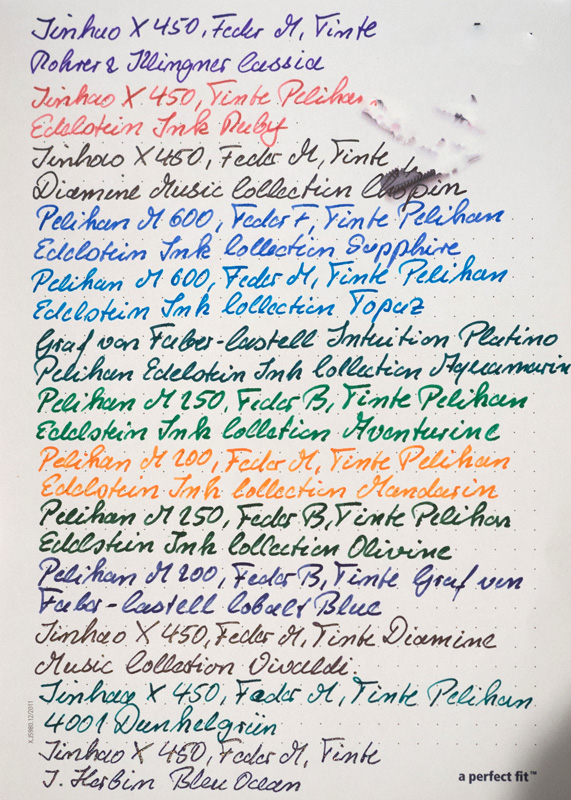 Jinhao X 450, Feder M, Tinte
Rohrer & Klingner Cassia
Jinhao X 450, Tinte Pelikan
Edelstein Ink Ruby
Jinhao X 450, Feder M, Tinte
Diamine Music Collection Chopin
Pelikan M 600, Feder F, Tinte Pelikan
Edelstein Ink Collection Sapphire
Pelikan M 600, Feder M, Tinte Pelikan
Edelstein Ink Collection Topaz
Graf von Faber-Castell Intuition Platino
Pelikan Edelstein Ink Collection Aquamarin
Pelikan M 250, Feder B, Tinte Pelikan
Edelstein Ink Collection Aventurine
Pelikan M 200, Feder M, Tinte Pelikan
Edelstein Ink Collection Mandarin
Pelikan M 250, Feder B, Tinte Pelikan
Edelstein Ink Collection Olivine
Pelikan M 200, Feder B, Tinte Graf von
Faber-Castell Cobalt Blue
Jinhao X 450, Feder M, Tinte Diamine
Music Collection Vivaldi.
Jinhao X 450, Feder M, Tinte Pelikan
4001 Dunkelgrün
Jinhao X 450, Feder M, Tinte
J. Herbin Bleu Ocean
a perfect fit™
XJ5980.12/2011